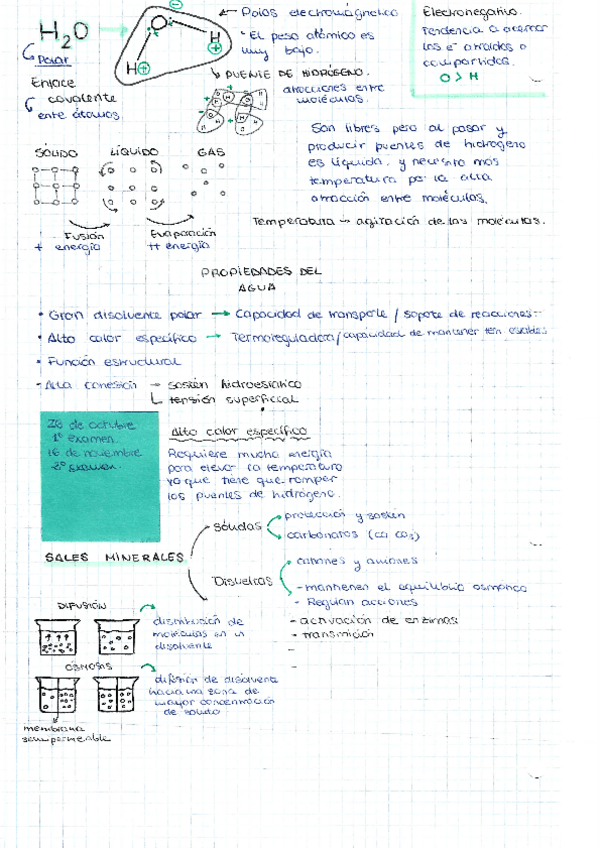 H₂O
Polar
Enlace
covalente
entre átomos.
O
H
H
← Polos electromagnético
* El peso atómico es
muy bajo.
↳ PUENTE DE HIDRÓGENO.
atracciones entre
moléculas.
Electronegativo.
Tendencia a acercar
los e⁻ atraídos o
compartidos.
O > H
Son libres pero al pasar y
producir puentes de hidrógeno
es líquida, y necesita más
temperatura por la alta
atracción entre moléculas.
SÓLIDO LÍQUIDO GAS
Fusión
+ energía
Evaporación
++ energía
Temperatura → agitación de las moléculas.
PROPIEDADES DEL
AGUA
• Gran disolvente polar → Capacidad de transporte / soporte de reacciones
• Alto calor específico → Termoreguladora / capacidad de mantener tem. estables
• Función estructural
- Alta cohesión → sostén hidrostático
↳ tensión superficial
28 de octubre
1º examen
16 de noviembre
2º examen.
Alto calor específico
Requiere mucha energía
para elevar la temperatura
ya que tiene que romper
los puentes de hidrógeno.
SALES MINERALES
Sólidas
protección y sostén
carbonatos (CaCO₃)
Disueltas
cationes y aniones
- mantienen el equilibrio osmótico
- Regulan acciones
- activación de enzimas
- transmisión
DIFUSIÓN
distribución de
moléculas en un
disolvente
ÓSMOSIS
difusión de disolvente
hacia una zona de
mayor concentración
de soluto
membrana
semipermeable